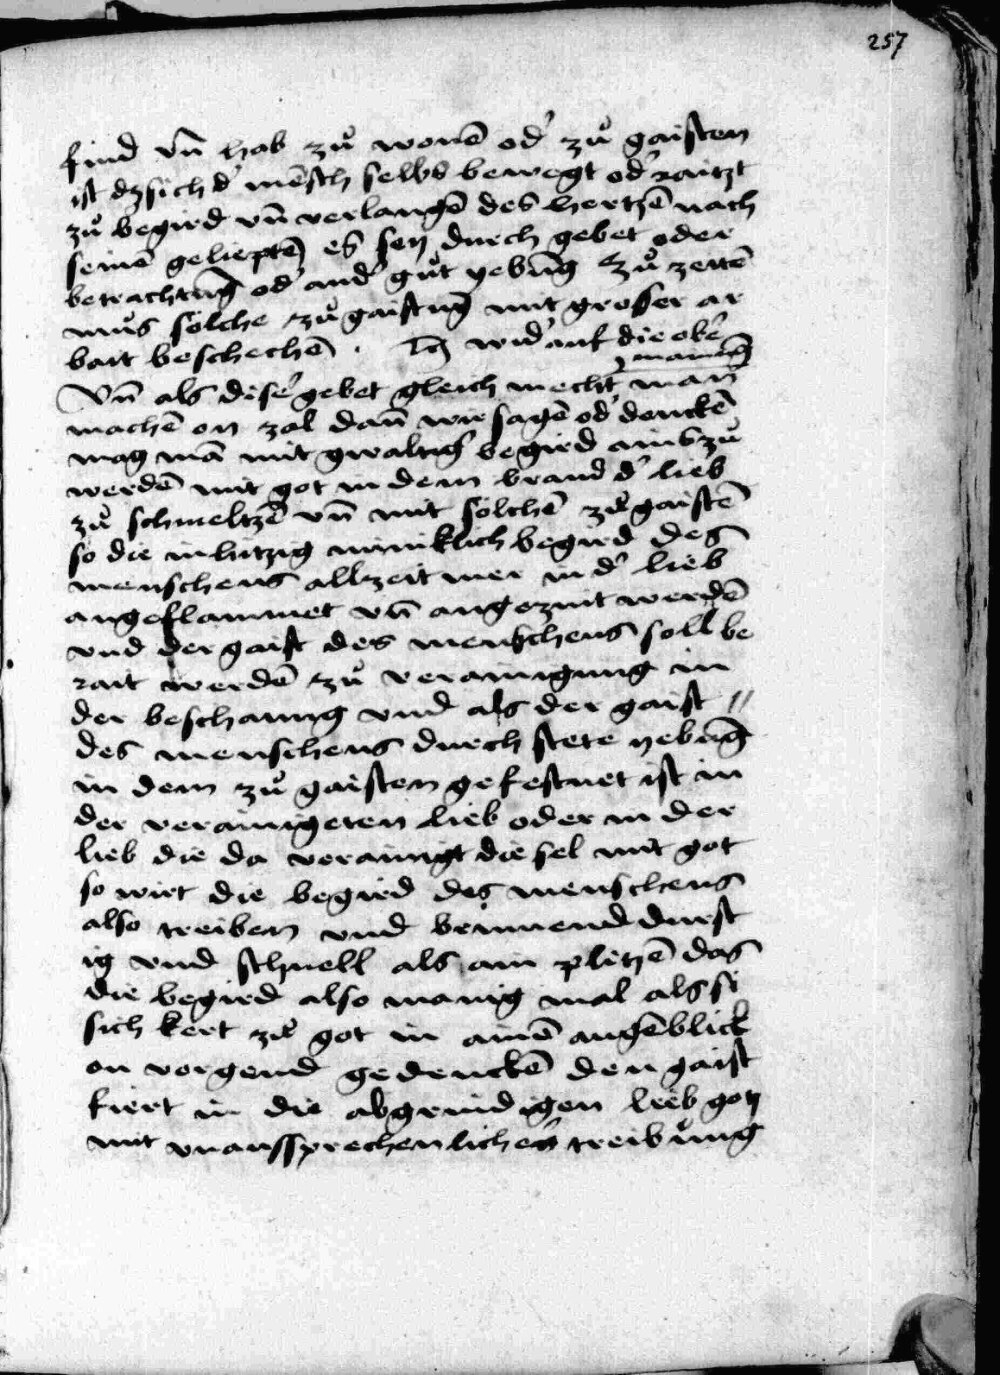 257
find vn̄ hab zů wonē od' zů gaisten
ist dz sich d' mēsch selbs bewegt od' raitzt
zů begird vn̄ verlangē des hertzē nach
seinē geliepte͂ es sey durch gebet oder
betrachtūg od' and' gůt yebūg Zů zeitē
můs sölche zůgaistūg mit grosser ar
bait beschechē . wid' auf die obē
manūg
Vn̄ als dise gebet gleich mecht man
machē on zal dan̄ wir sagē od' denckē
mag mā mit gwaltig' begird ains zů
werdē mit got in dem brand d' lieb
zů schmeltzē vn̄ mit sölchē zů gaistē
so die inhitzig miniklich begird des
menschens allzeit mer in d' lieb
angeflammet vn̄ angezint werdē
vnd der gaist des menschens soll be
rait werdē zů verainigung in
der beschaung vnd als der gaist //
des menschens durch stete yebūg
in dem zů gaisten gefestnet ist in
der verainigeten lieb oder in der
lieb die da verainigt die sel mit got
so wirt die begird des menschens
also treiben vnd brinnend durst
ig vnd schnell als ain plitzē das
die begird also manig mal als si
sich kert zů got in ainē augēblick
on vorgend gedenckē den gaist
fiert in die abgrindigen lieb gotz
mit vnaussprechenlichen treibůng